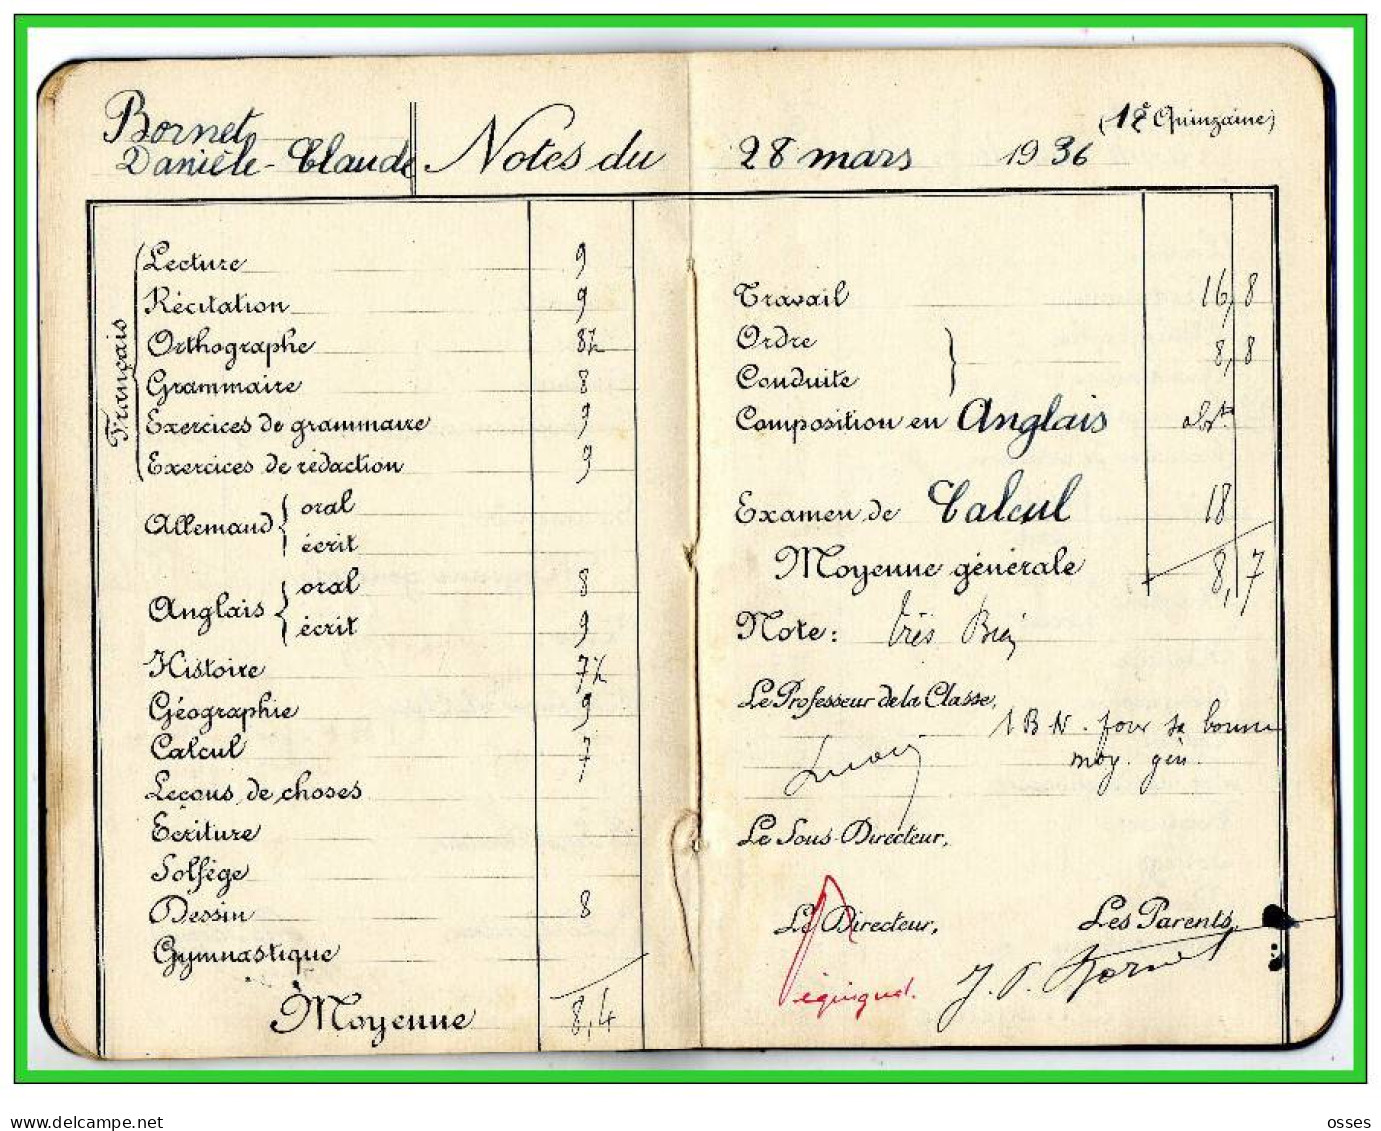 Bornet
Danièle-Claude
Notes du
28 mars 1936
(12e Quinzaine)
Français
Lecture 9
Récitation 9
Orthographe 8½
Grammaire 8
Exercices de grammaire 9
Exercices de rédaction 9
Allemand
oral
écrit
Anglais
oral 8
écrit 9
Histoire 7½
Géographie 9
Calcul 7
Leçons de choses
Ecriture
Solfège
Dessin 8
Gymnastique
Moyenne 8,4
Travail 16,8
Ordre
Conduite
8,8
Composition en Anglais abste
Examen de Calcul 18
Moyenne générale 8,7
Note: très Bien
Le Professeur de la Classe,
1 B N. pour sa bonne
moy. gén.
Le Sous-Directeur,
Le Directeur,
Les Parents,
J. P. Bornet
delcampe.net
osses